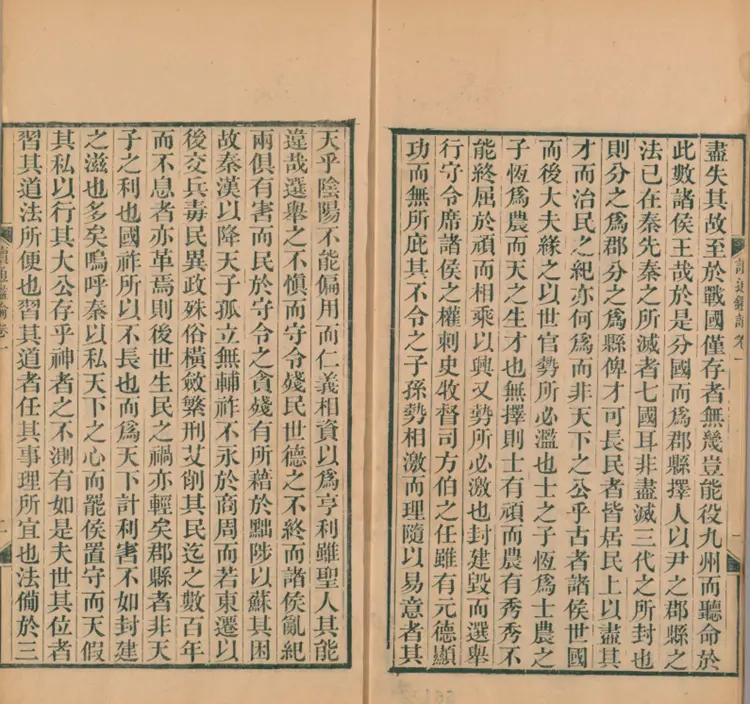 盡失其故至於戰國僅存者無幾豈能役九州而聽命於
此數諸侯王哉於是分國而爲郡縣擇人以尹之郡縣之
法已在秦先秦之所滅者七國耳非盡滅三代之所封也
則分之爲郡分之爲縣俾才可長民者皆居民上以盡其
才而治民之紀亦何爲而非天下之公乎古者諸侯世國
而後大夫緣之以世官勢所必濫也士之子恆爲士農之
子恆爲農而天之生才也無擇則士有頑而農有秀秀不
能終屈於頑而相乘以興又勢所必激也封建毀而選舉
行守令席諸侯之權刺史牧督司方伯之任雖有元德顯
功而無所庇其不令之子孫勢相激而理隨以易意者其
讀通鑑論卷一
一
天乎陰陽不能偏用而仁義相資以爲亨利雖聖人其能
違哉選舉之不愼而守令殘民世德之不終而諸侯亂紀
兩俱有害而民於守令之貪殘有所藉於黜陟以蘇其困
故秦漢以降天子孤立無輔祚不永於商周而若東遷以
後交兵毒民異政殊俗橫斂繁刑艾削其民迄之數百年
而不息者亦革焉則後世生民之禍亦輕矣郡縣者非天
子之利也國祚所以不長也而爲天下計利害不如封建
之滋也多矣嗚呼秦以私天下之心而罷侯置守而天假
其私以行其大公存乎神者之不測有如是夫世其位者
習其道法所便也習其道者任其事理所宜也法備於三
讀通鑑論卷一
二